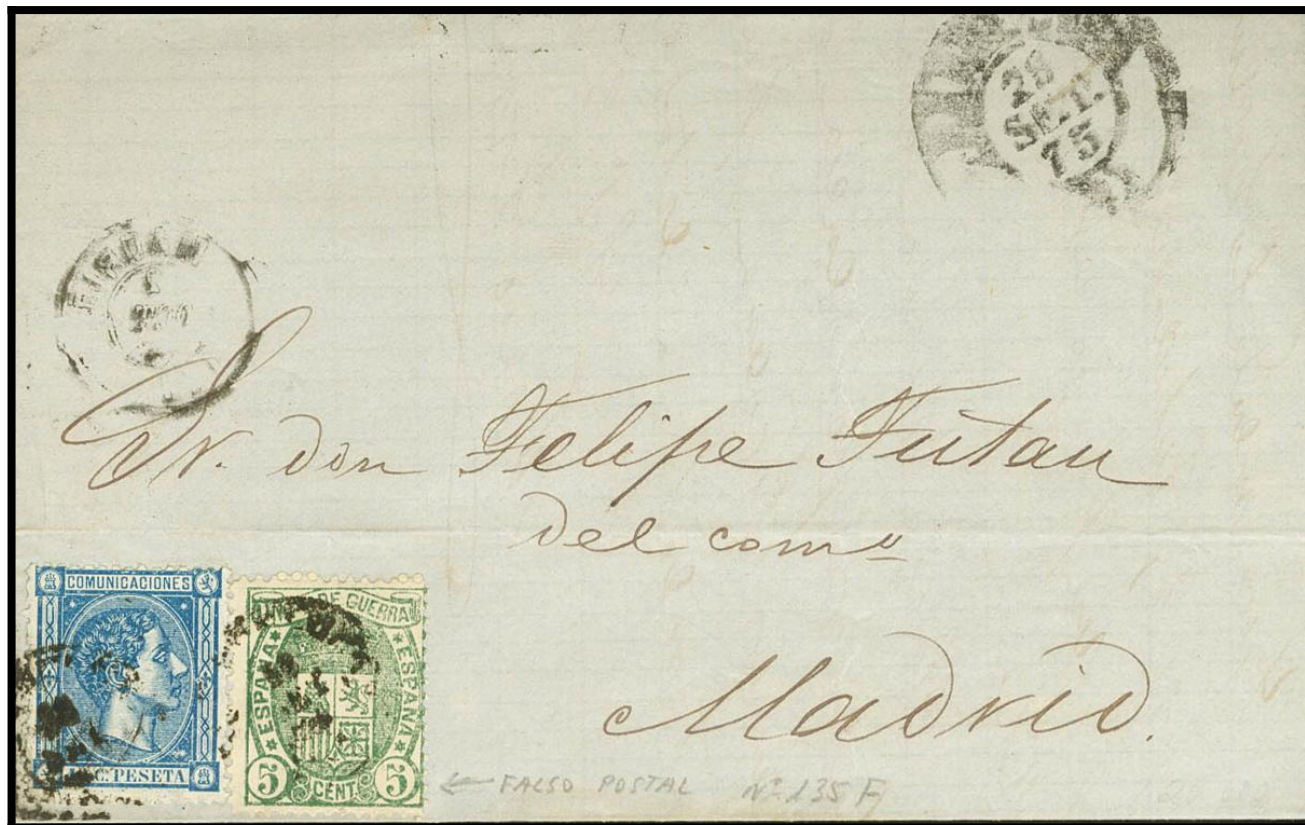 28
SET.
75
Sr. don Felipe Futau
del com<sup>o</sup>
Madrid.
COMUNICACIONES
C. PESETA
DE GUERRA
ESPAÑA
ESPAÑA
5 CENT. 5
← FALSO POSTAL Nº 135 F